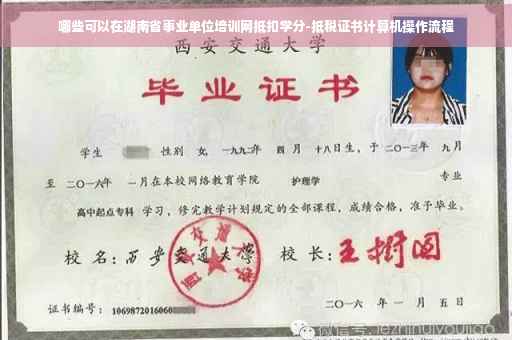 哪些可以在湖南省事业单位培训网抵扣学分-抵税证书计算机操作流程
西安交通大学
毕业证书
学生 性别 女, 一九九二年 四月 十八日生, 于二〇一三年 九月
至 二〇一六年 一月在本校网络教育学院 护理学 专业
高中起点专科 学习, 修完教学计划规定的全部课程, 成绩合格, 准予毕业。
校名: 西安交通大学 校长: 王树国
证书编号: 1069872016060
二〇一六年 一月 五日
微信号: jezhihuiyoujiao